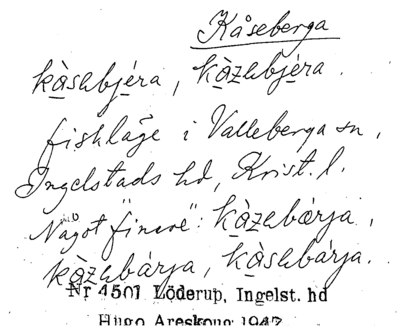 Kåseberga
kàsebjéra, kàzebjéra.
fiskläge i Valleberga sn,
Ingelstads hd, Krist. l.
Något "finare": kàzebærja,
kàzebárja, kàsebárja.
Nr 4501 Löderup, Ingelst. hd
Hugo Areskoug 1947